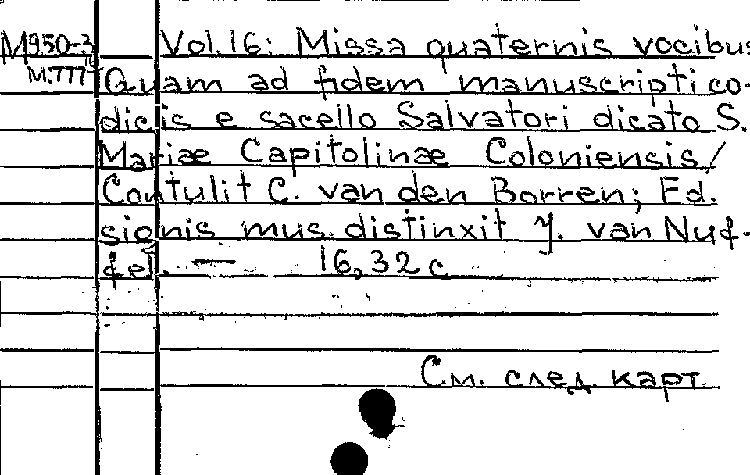 M950-3 Vol. 16: Missa quaternis vocibus
M.777 Quam ad fidem manuscripti co-
dicis e sacello Salvatori dicato S.
Mariae Capitolinae Coloniensis/
Contulit C. van den Borren; Ed.
sionis mus. distinxit J. van Nuf-
fel. — 16,32 с
См. след. карт.